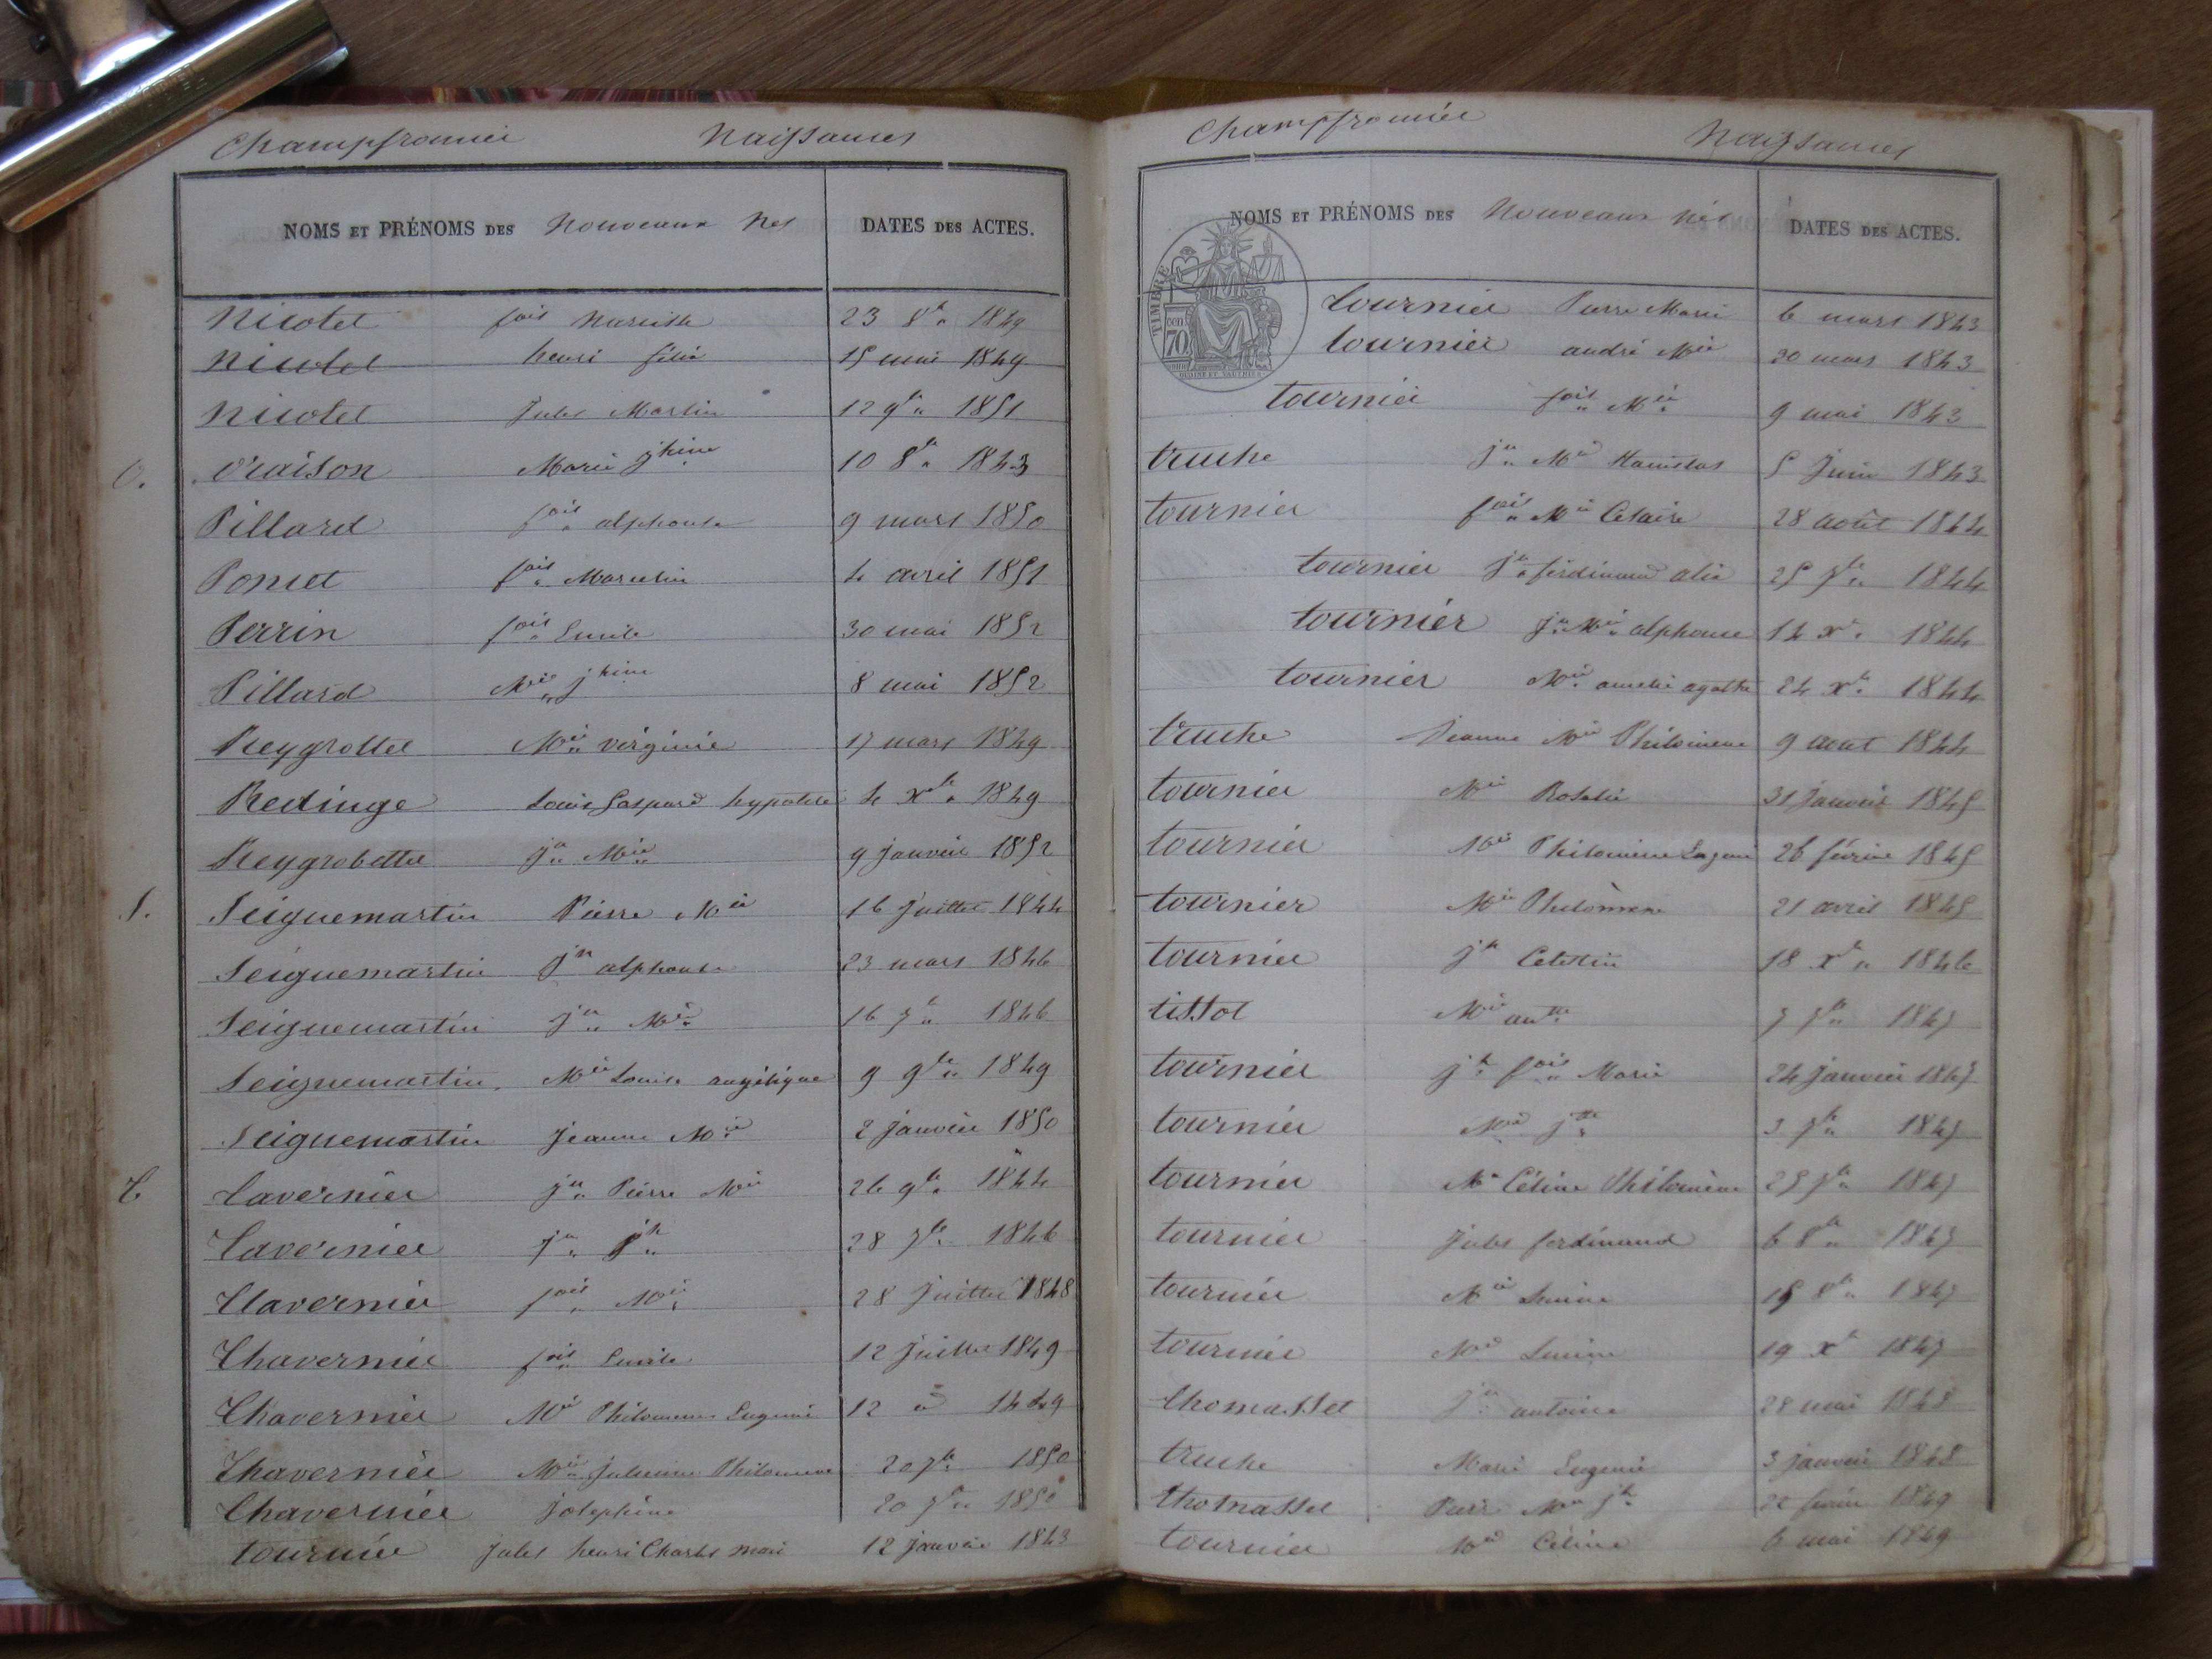 Champfromier Naissances
NOMS ET PRÉNOMS DES Nouveaux Nés DATES DES ACTES.
Nicolet fois Narcisse 23 8bre 1849
Nicolet henri félix 15 mai 1849
Nicolet Jules Martin 12 9bre 1851
O. Oraison Marie jhine 10 8bre 1843
Pillard fois alphonse 9 mars 1850
Poncet fois Marcelin 4 avril 1851
Perrin fois Emile 30 mai 1852
Pillard Mie jhine 8 mai 1852
Reygrobellet Mie virginie 17 mars 1849
Redinge Louis Gaspard hypolite 4 xbre 1849
Reygrobellet jn Mie 9 janvier 1852
S. Seignemartin Pierre Mie 16 juillet 1844
Seignemartin jn alphonse 23 mars 1846
Seignemartin jn Mie 16 7bre 1846
Seignemartin Mie Louise angélique 9 9bre 1849
Seignemartin Jeanne Mie 2 janvier 1850
T. Tavernier jn Pierre Mie 26 9bre 1844
Tavernier jn jh 28 7bre 1846
Tavernier fois Mie 28 juillet 1848
Thavernier fois Emile 12 juillet 1849
Thavernier Mie Philomene Eugenie 12 d 1849
Thavernier Mie julienne Philomene 20 7bre 1850
Thavernier Joséphine 20 7bre 1850
tournier Jules henri Charles marie 12 janvier 1843
Champfromier Naissances
NOMS ET PRÉNOMS DES Nouveaux Nés DATES DES ACTES.
TIMBRE
cen. 70
tournier Pierre Marie 6 mars 1843
tournier andré Mie 30 mars 1843
tournier fois Mie 9 mai 1843
truche jn Mie Stanislas 5 Juin 1843
tournier fois Mie Césaire 28 août 1844
tournier jn ferdinand 25 7bre 1844
tournier jn Mie alphonse 14 xbre 1844
tournier Mie amelie agathe 24 xbre 1844
truche Jeanne Mie Philomene 9 aout 1844
tournier Mie Rosalie 31 janvier 1845
tournier Mie Philomène Eugenie 26 février 1845
tournier Mie Philomène 21 avril 1845
tournier jh Celestin 18 xbre 1846
tissot Mie antte 7 7bre 1847
tournier jh fois Marie 24 janvier 1847
tournier Mie jtte 3 7bre 1847
tournier Mie Céline Philomène 25 7bre 1847
tournier Jules ferdinand 6 8bre 1847
tournier Mie 15 8bre 1847
tournier Mie 19 xbre 1847
thomasset jn antoine 28 mai 1848
truche Marie Eugenie 3 janvier 1848
thomasset Pierre Mie jh 22 février 1849
tournier Mie Céline 6 mai 1849